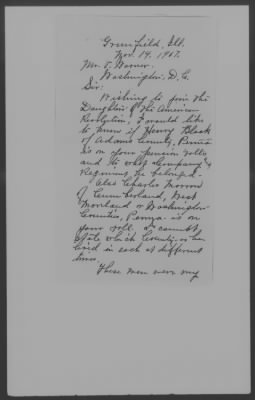 Greenfield, Ill.
Nov. 14, 1907.
Mr. V. Warner.
Washington, D.C.
Sir:
Wishing to join the
Daughters of the American
Revolution, I would like
to know if Henry Black
of Adams County, Penna
is on your pension rolls
and to what Company &
Regiment he belonged.
Also Charles Morrow
of Cumberland, West
Moreland or Washington
Counties, Penna. is on
your roll. I cannot
state which County as he
lived in each at different
times.
These men were my